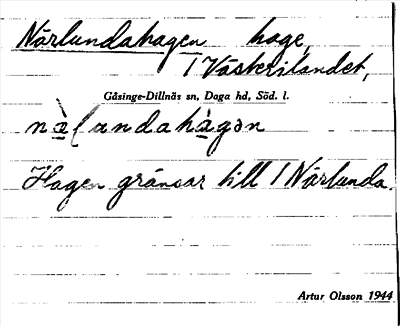 Närlundahagen hage,
1 Västerilandet,
Gåsinge-Dillnäs sn, Daga hd, Söd. l.
nàlundahàgən
Hagen gränsar till 1 Närlunda.
Artur Olsson 1944